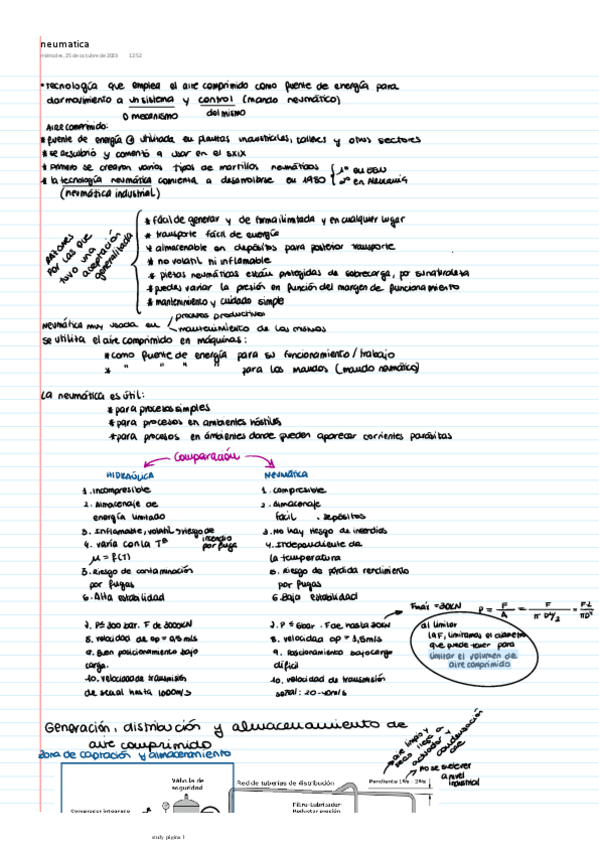 neumatica
miércoles, 25 de octubre de 2023 12:52
* Tecnología que emplea el aire comprimido como fuente de energía para
dar movimiento a un sistema y control (mando neumático)
o mecanismo del mismo
Aire comprimido:
* fuente de energía utilizada en plantas industriales, talleres y otros sectores
* se descubrió y comentó a usar en el s.XIX
* primero se crearon varios tipos de martillos neumáticos
* la tecnología neumática comienza a desarrollarse en 1980
(neumática industrial)
1º en EEUU
2º en Alemania
razones
por las que
tuvo una
aceptación
generalizada
* fácil de generar y de forma ilimitada y en cualquier lugar
* transporte fácil de energía
* almacenable en depósitos para posterior transporte
* no volatil ni inflamable
* piezas neumáticas están protegidas de sobrecarga, por su naturaleza
* puedes variar la presión en función del margen de funcionamiento
* mantenimiento y cuidado simple
Neumática muy usada en
procesos productivos
mantenimiento de las mismas
se utiliza el aire comprimido en máquinas:
* como fuente de energía para su funcionamiento/trabajo
* " " " " para los mandos (mando neumático)
La neumática es útil:
* para procesos simples
* para procesos en ambientes hostiles
* para procesos en ambientes donde pueden aparecer corrientes parásitas
Comparación
HIDRAÚLICA
1. Incompresible
2. Almacenaje de
energía limitado
3. Inflamable, volatil y riesgo de
incendio
por fuga
4. varía con la Tª
μ = f(T)
5. Riesgo de contaminación
por fugas
6. Alta estabilidad
7. P≤ 300 bar. F de 3000KN
8. velocidad de op = 0,5 m/s
9. Bien posicionamiento bajo
carga.
10. velocidad de transmisión
de señal hasta 1000m/s
NEUMÁTICA
1. compresible
2. Almacenaje
fácil . depósitos
3. No hay riesgo de incendios
4. Independiente de
la temperatura
5. Riesgo de pérdida rendimiento
por fugas
6. Baja estabilidad
7. P ≤ 6bar. F de hasta 30KN
8. velocidad op = 1,5m/s
9. Posicionamiento bajo carga
difícil
10. velocidad de transmisión
señal: 20-40m/s
Fmax = 30KN
P = F/A = F/πD²/2 = F2/πD²
al limitar
la F, limitamos el diámetro
que puede tener para
limitar el volumen de
aire comprimido
Generación, distribución y almacenamiento de
aire comprimido
zona de captación y almacenamiento
aire limpio y
seco llega a
actuador y
condensación
cae
No se suelen
a nivel
industrial
Válvula de
seguridad
Red de tuberías de distribución
Pendiente 1% - 2%
Compresor integrado
Filtro-Lubricador
study página 1